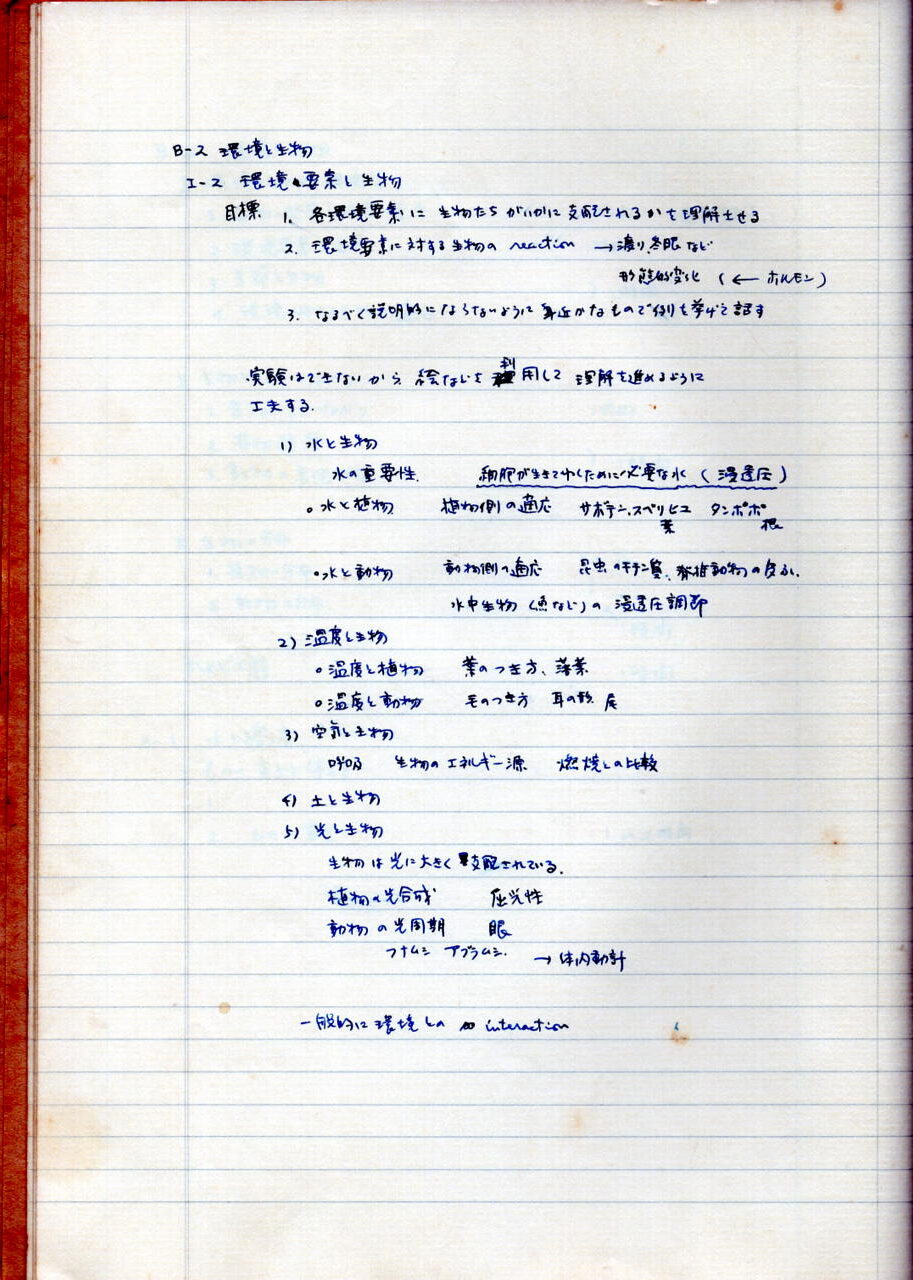 B-2 環境と生物
I-2 環境要素と生物
目標 1. 各環境要素に 生物たちがいかに支配されるかを理解させる
2. 環境要素に対する生物の reaction → 渡り,冬眠など
形態的変化 (← ホルモン)
3. なるべく説明的にならないように身近かなもので例を挙げて話す
実験はできないから 絵などを利用して 理解を進めるように
工夫する.
1) 水と生物
水の重要性. 細胞が生きてゆくために必要な水 (浸透圧)
○水と植物 植物側の適応 サボテン,スベリヒユ タンポポ
葉 根
○水と動物 動物側の適応 昆虫のキチン質,脊椎動物の皮ふ.
水中生物(魚など)の 浸透圧調節
2) 温度と生物
○温度と植物 葉のつき方、落葉
○温度と動物 毛のつき方 耳の形 尾
3) 空気と生物
呼吸 生物のエネルギー源 燃焼との比較
4) 土と生物
5) 光と生物
生物は光に大きく支配されている.
植物の光合成 屈光性
動物の光周期 眼
フナムシ アブラムシ. → 体内時計
一般的に環境との interaction